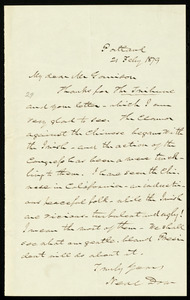 Portland
21 Feby 1879
My dear Mr Garrison
Thanks for The Tribune
and your letter - which I am
very glad to see. The clamor
against the Chinese began with
the Irish - and the action of the
Congress has been a mere truck-
ling to them. I have seen the Chi-
nese in California - an industri-
ous, peaceful folk - while the Irish
are vicious, turbulent & ugly!
I mean the most of them - We shall
see what our gentle, bland Presi-
dent will do about it.
Truly Yours
Neal Dow